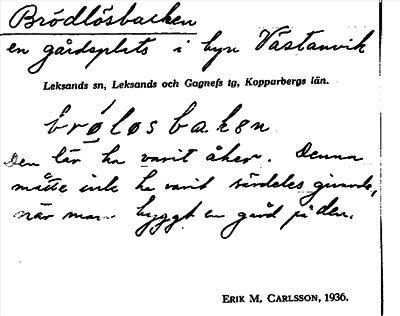 Brödlösbacken
en gårdsplats i byn Västanvik
Leksands sn, Leksands och Gagnefs tg, Kopparbergs län.
brø̀løsbakɐn
Den lär ha varit åker. Denna
måtte inte ha varit särdeles givande,
när man byggt en gård på den.
ERIK M. CARLSSON, 1936.